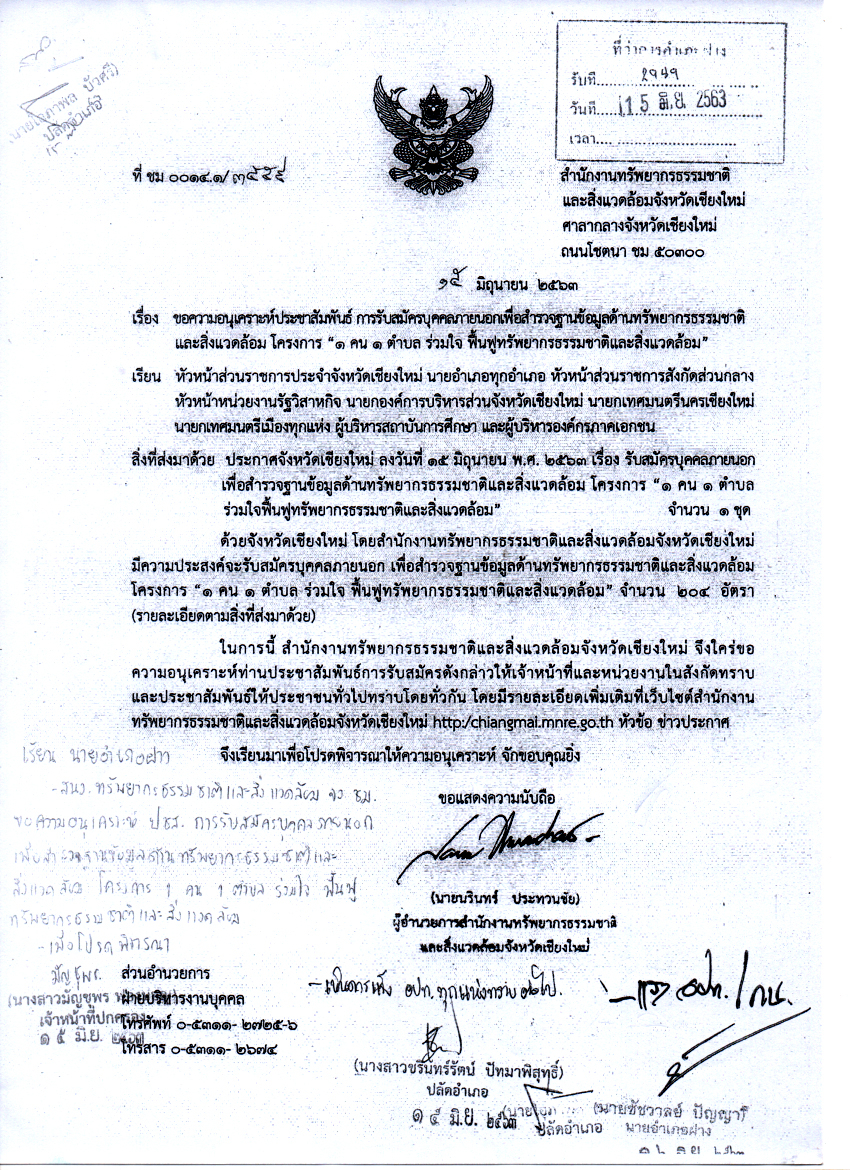 ที่ว่าการอำเภอฝาง
รับที่ ๒๙๔๑
วันที่ 15 มิ.ย. 2563
เวลา
ปลัดอำเภอ
ที่ ชม ๐๐๑๔.๑/๓๕๕๙
สำนักงานทรัพยากรธรรมชาติ
และสิ่งแวดล้อมจังหวัดเชียงใหม่
ศาลากลางจังหวัดเชียงใหม่
ถนนโชตนา ชม ๕๐๓๐๐
๑๕ มิถุนายน ๒๕๖๓
เรื่อง ขอความอนุเคราะห์ประชาสัมพันธ์ การรับสมัครบุคคลภายนอกเพื่อสำรวจฐานข้อมูลด้านทรัพยากรธรรมชาติ
และสิ่งแวดล้อม โครงการ “๑ คน ๑ ตำบล ร่วมใจ ฟื้นฟูทรัพยากรธรรมชาติและสิ่งแวดล้อม”
เรียน หัวหน้าส่วนราชการประจำจังหวัดเชียงใหม่ นายอำเภอทุกอำเภอ หัวหน้าส่วนราชการสังกัดส่วนกลาง
หัวหน้าหน่วยงานรัฐวิสาหกิจ นายกองค์การบริหารส่วนจังหวัดเชียงใหม่ นายกเทศมนตรีนครเชียงใหม่
นายกเทศมนตรีเมืองทุกแห่ง ผู้บริหารสถาบันการศึกษา และผู้บริหารองค์กรภาคเอกชน
สิ่งที่ส่งมาด้วย ประกาศจังหวัดเชียงใหม่ ลงวันที่ ๑๕ มิถุนายน พ.ศ. ๒๕๖๓ เรื่อง รับสมัครบุคคลภายนอก
เพื่อสำรวจฐานข้อมูลด้านทรัพยากรธรรมชาติและสิ่งแวดล้อม โครงการ “๑ คน ๑ ตำบล
ร่วมใจฟื้นฟูทรัพยากรธรรมชาติและสิ่งแวดล้อม” จำนวน ๑ ชุด
ด้วยจังหวัดเชียงใหม่ โดยสำนักงานทรัพยากรธรรมชาติและสิ่งแวดล้อมจังหวัดเชียงใหม่
มีความประสงค์จะรับสมัครบุคคลภายนอก เพื่อสำรวจฐานข้อมูลด้านทรัพยากรธรรมชาติและสิ่งแวดล้อม
โครงการ “๑ คน ๑ ตำบล ร่วมใจ ฟื้นฟูทรัพยากรธรรมชาติและสิ่งแวดล้อม” จำนวน ๒๐๔ อัตรา
(รายละเอียดตามสิ่งที่ส่งมาด้วย)
ในการนี้ สำนักงานทรัพยากรธรรมชาติและสิ่งแวดล้อมจังหวัดเชียงใหม่ จึงใคร่ขอ
ความอนุเคราะห์ท่านประชาสัมพันธ์การรับสมัครดังกล่าวให้เจ้าหน้าที่และหน่วยงานในสังกัดทราบ
และประชาสัมพันธ์ให้ประชาชนทั่วไปทราบโดยทั่วกัน โดยมีรายละเอียดเพิ่มเติมที่เว็บไซต์สำนักงาน
ทรัพยากรธรรมชาติและสิ่งแวดล้อมจังหวัดเชียงใหม่ http:/chiangmai.mnre.go.th หัวข้อ ข่าวประกาศ
จึงเรียนมาเพื่อโปรดพิจารณาให้ความอนุเคราะห์ จักขอบคุณยิ่ง
ขอแสดงความนับถือ
(นายนรินทร์ ประทวนชัย)
ผู้อำนวยการสำนักงานทรัพยากรธรรมชาติ
และสิ่งแวดล้อมจังหวัดเชียงใหม่
เรียน นายอำเภอฝาง
- สนง.ทรัพยากรธรรมชาติและสิ่งแวดล้อม จว.ชม.
ขอความอนุเคราะห์ ปชส. การรับสมัครบุคคลภายนอก
เพื่อสำรวจฐานข้อมูลด้านทรัพยากรธรรมชาติและ
สิ่งแวดล้อม โครงการ 1 คน 1 ตำบล ร่วมใจ ฟื้นฟู
ทรัพยากรธรรมชาติและสิ่งแวดล้อม
- เพื่อโปรดพิจารณา
มัญชุพร
(นางสาวมัญชุพร
เจ้าหน้าที่ปกครอง
๑๕ มิ.ย. ๒๕๖๓
ส่วนอำนวยการ
ฝ่ายบริหารงานบุคคล
โทรศัพท์ ๐-๕๓๑๑-๒๗๒๕-๖
โทรสาร ๐-๕๓๑๑-๒๖๗๔
- เห็นควรแจ้ง อปท.ทุกแห่งทราบต่อไป.
(นางสาวชรินทร์รัตน์ ปัทมาพิสุทธิ์)
ปลัดอำเภอ
๑๕ มิ.ย. ๒๕๖๓
ปลัดอำเภอ
(นายชัชวาลย์ ปัญญา)
นายอำเภอฝาง